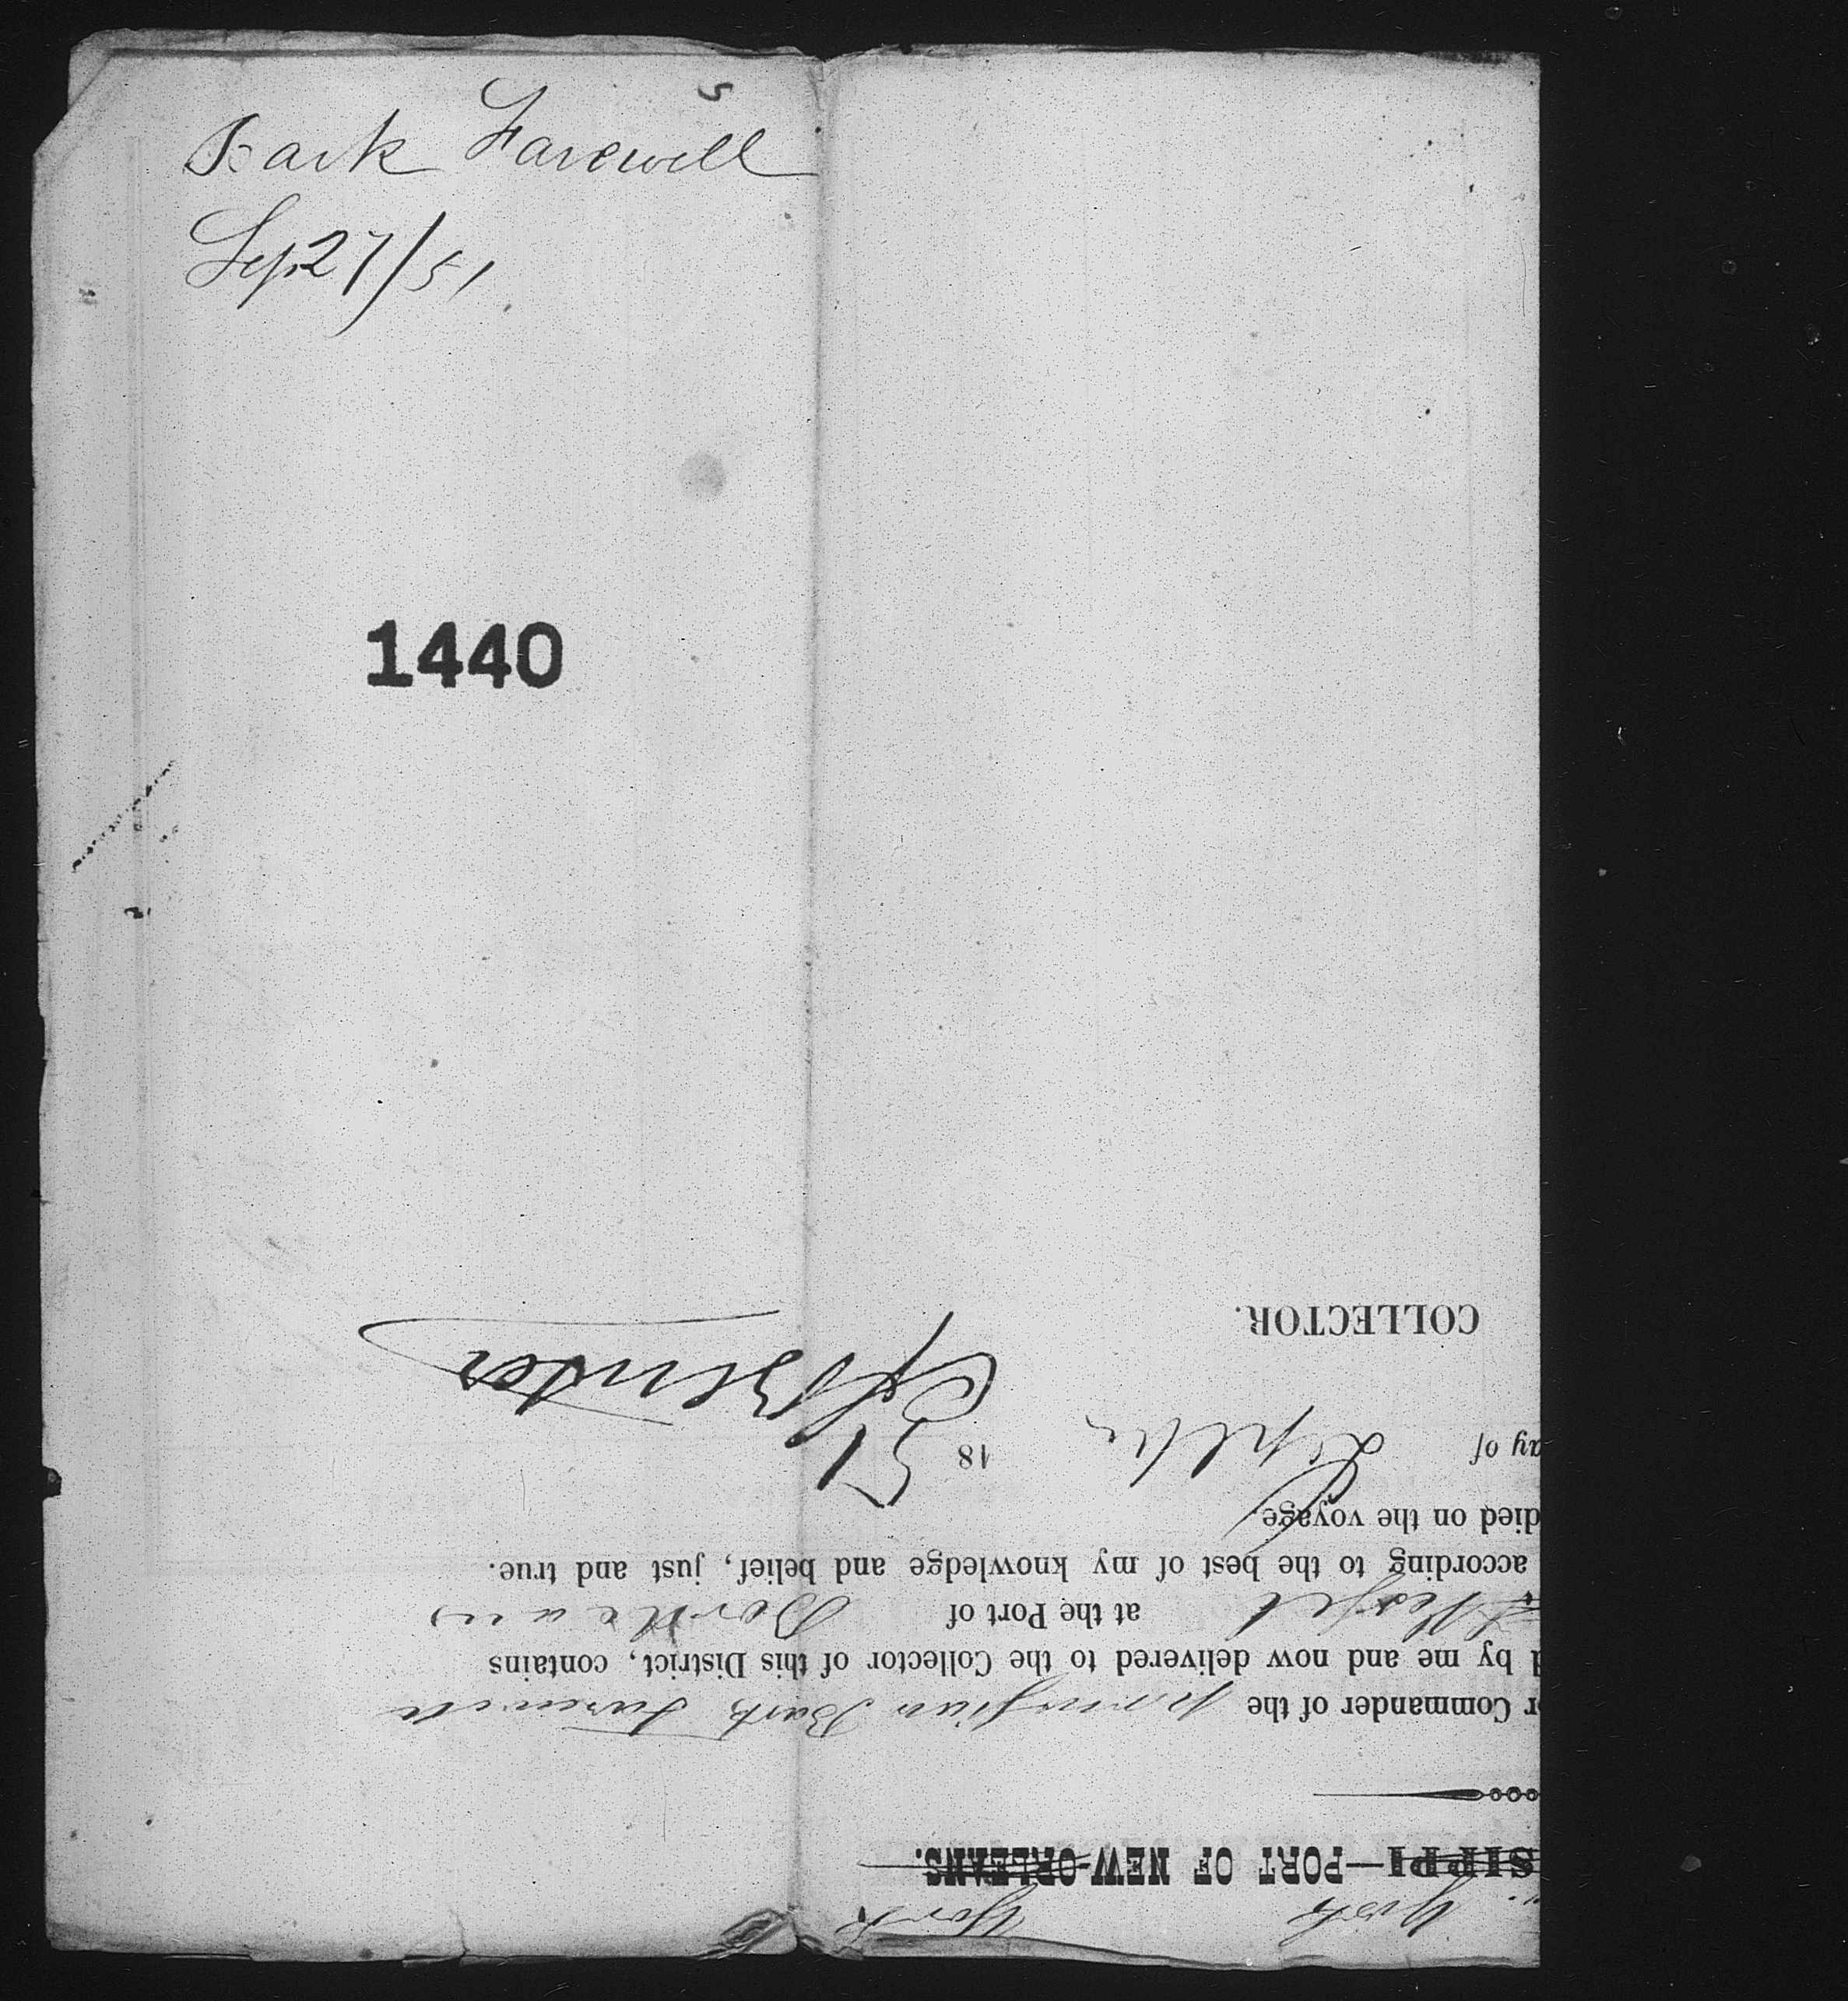 5
Bark Farewell
Sep 27/51
1440
York York
SIPPI—PORT OF NEW-ORLEANS.
r Commander of the Bark Farewell
d by me and now delivered to the Collector of this District, contains
at the Port of
according to the best of my knowledge and belief, just and true.
died on the voyage.
ay of Septbr 1851
COLLECTOR.